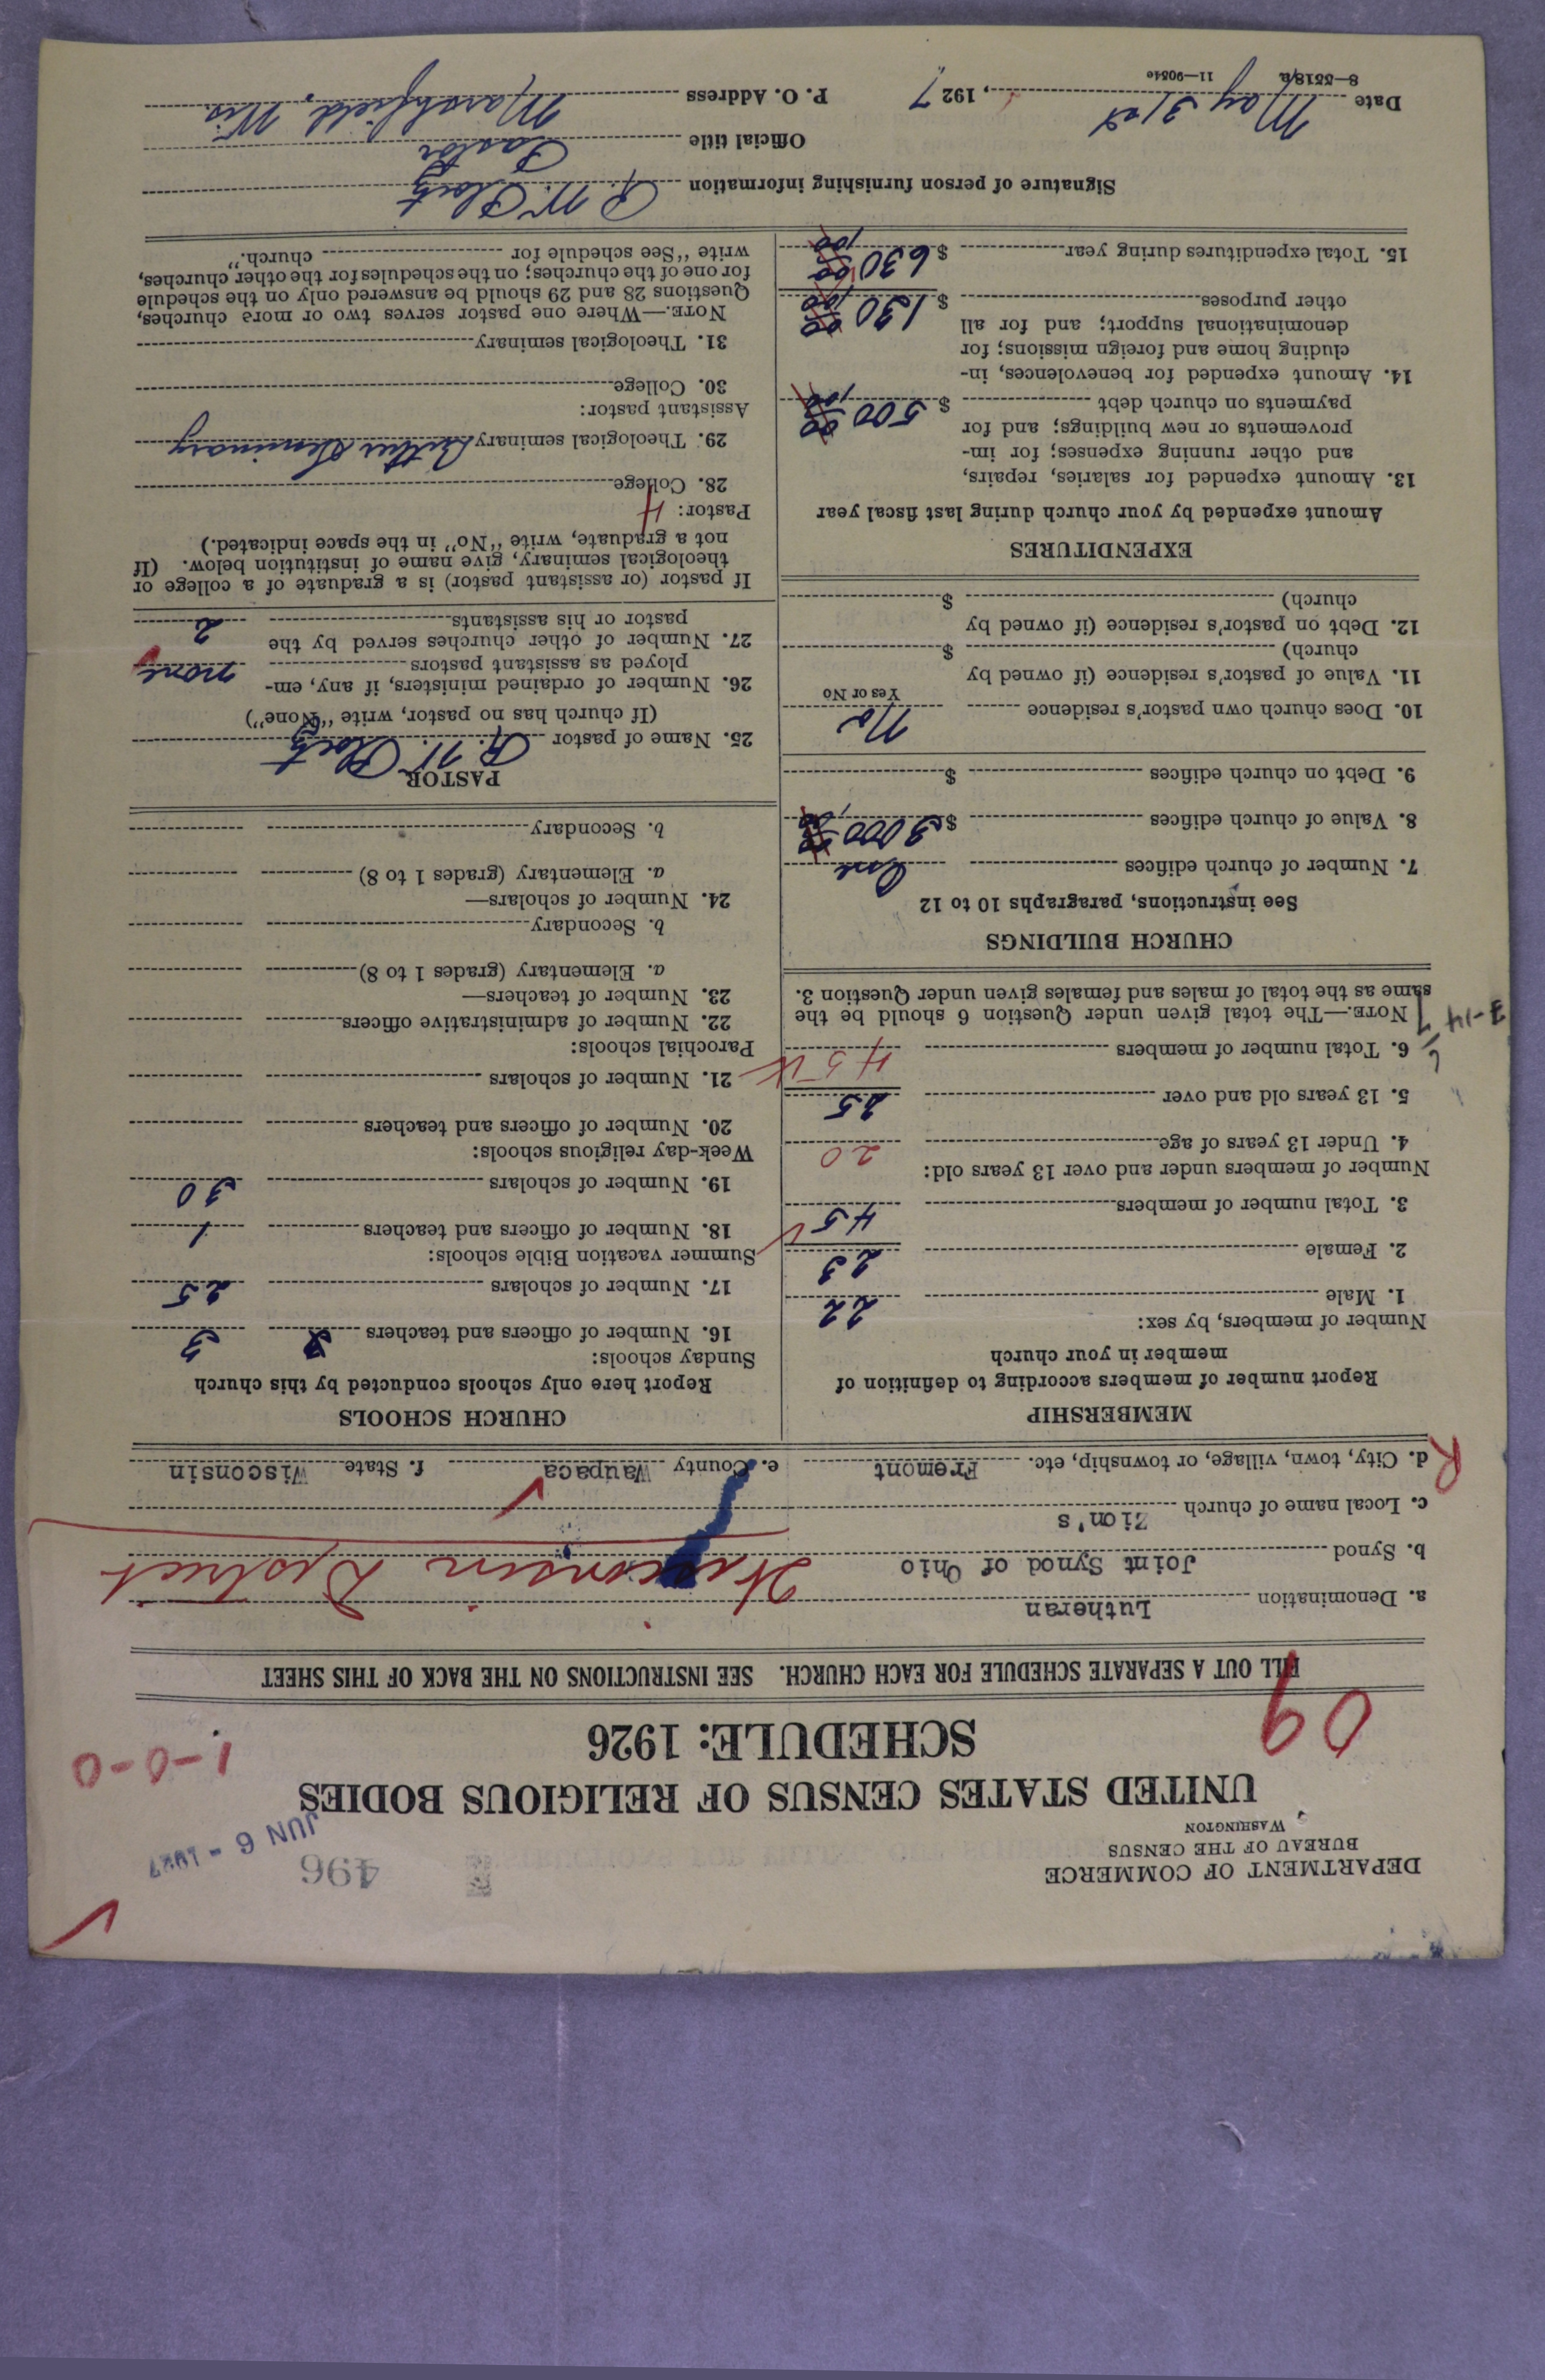 DEPARTMENT OF COMMERCE
BUREAU OF THE CENSUS
WASHINGTON
496
JUN 6 - 1927
UNITED STATES CENSUS OF RELIGIOUS BODIES
SCHEDULE: 1926
09
1-0-0
FILL OUT A SEPARATE SCHEDULE FOR EACH CHURCH. SEE INSTRUCTIONS ON THE BACK OF THIS SHEET
a. Denomination Lutheran
b. Synod Joint Synod of Ohio Wisconsin District
c. Local name of church Zion's
R
d. City, town, village, or township, etc. Fremont e. County Waupaca f. State Wisconsin
MEMBERSHIP
Report number of members according to definition of
member in your church
Number of members, by sex:
1. Male 22
2. Female 23
3. Total number of members 45
Number of members under and over 13 years old:
4. Under 13 years of age 20
5. 13 years old and over 25
6. Total number of members 45
NOTE.—The total given under Question 6 should be the
same as the total of males and females given under Question 3.
7-14
CHURCH BUILDINGS
See instructions, paragraphs 10 to 12
7. Number of church edifices One
8. Value of church edifices $ 3000
9. Debt on church edifices $
10. Does church own pastor's residence No
Yes or No
11. Value of pastor's residence (if owned by
church) $
12. Debt on pastor's residence (if owned by
church) $
EXPENDITURES
Amount expended by your church during last fiscal year
13. Amount expended for salaries, repairs,
and other running expenses; for im-
provements or new buildings; and for
payments on church debt $ 500
14. Amount expended for benevolences, in-
cluding home and foreign missions; for
denominational support; and for all
other purposes $ 130
15. Total expenditures during year $ 630
CHURCH SCHOOLS
Report here only schools conducted by this church
Sunday schools:
16. Number of officers and teachers 3
17. Number of scholars 25
Summer vacation Bible schools:
18. Number of officers and teachers 1
19. Number of scholars 30
Week-day religious schools:
20. Number of officers and teachers
21. Number of scholars
Parochial schools:
22. Number of administrative officers
23. Number of teachers—
a. Elementary (grades 1 to 8)
b. Secondary
24. Number of scholars—
a. Elementary (grades 1 to 8)
b. Secondary
PASTOR
25. Name of pastor R. W. Ploetz
(If church has no pastor, write "None")
26. Number of ordained ministers, if any, em-
ployed as assistant pastors none
27. Number of other churches served by the
pastor or his assistants 2
If pastor (or assistant pastor) is a graduate of a college or
theological seminary, give name of institution below. (If
not a graduate, write "No" in the space indicated.)
Pastor: 4
28. College
29. Theological seminary Luther Seminary
Assistant pastor:
30. College
31. Theological seminary
NOTE.—Where one pastor serves two or more churches,
Questions 28 and 29 should be answered only on the schedule
for one of the churches; on the schedules for the other churches,
write "See schedule for church."
Signature of person furnishing information R. W. Ploetz
Official title Pastor
Date May 31st, 1927 P. O. Address Marshfield, Wis.
8—5518a 11—9051e